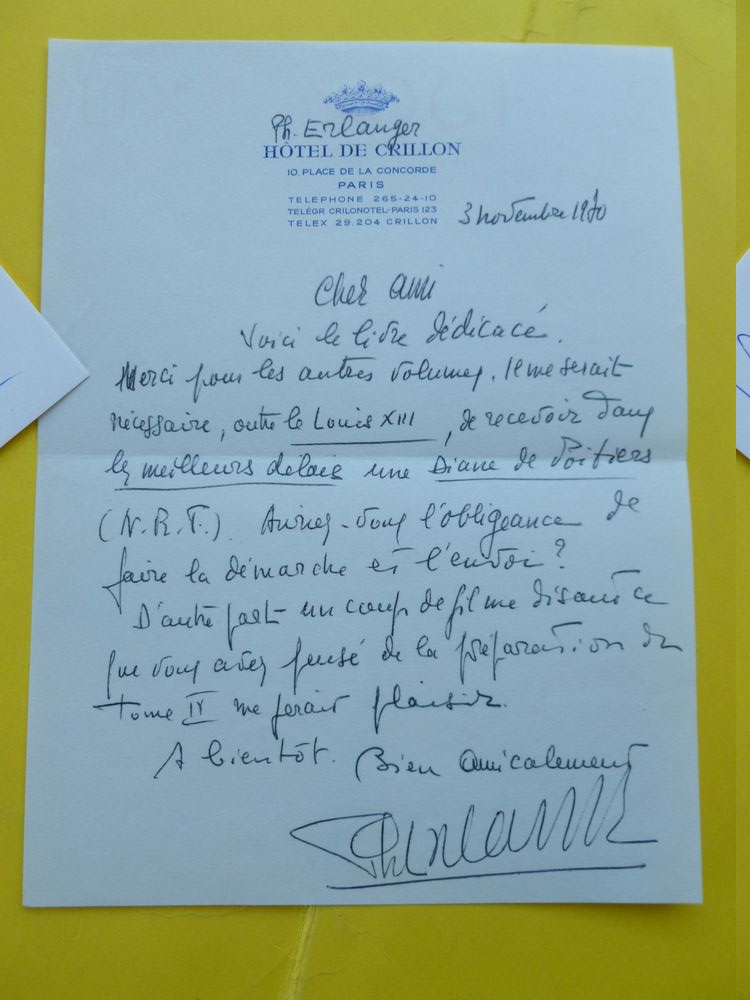 Ph. Erlanger
HÔTEL DE CRILLON
10, PLACE DE LA CONCORDE
PARIS
TELEPHONE 265-24-10
TELÉGR CRILONOTEL-PARIS 123
TELEX 29.204 CRILLON
3 novembre 1970
Cher ami
Voici le livre dédicacé.
Merci pour les autres volumes. Il me serait
nécessaire, outre le Louis XIII, de recevoir dans
les meilleurs délais une Diane de Poitiers
(N.R.F.). Auriez-vous l'obligeance de
faire la démarche et l'envoi?
D'autre part un coup de fil me disant ce
que vous avez pensé de la préparation du
tome IV me ferait plaisir.
A bientôt. Bien amicalement
Ph Erlanger